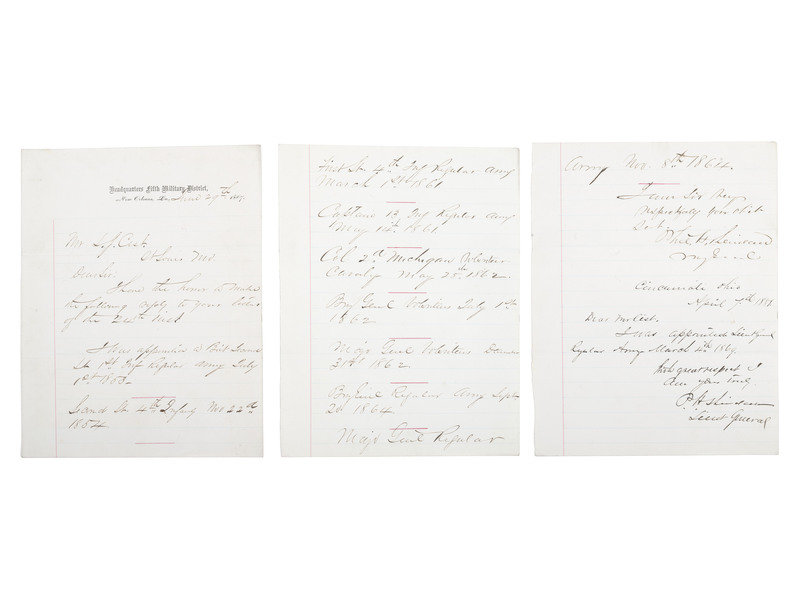 Headquarters Fifth Military District,
New Orleans, La., June 29th 1867.
Mr L.J. Cist
St Louis Mo.
Dear Sir.
I have the honor to make
the following reply to your letter
of the 24th inst.
I was appointed a Brvt Second
Lt 1st Inf Regular Army July
1st 1853.
Second Lt. 4th Infty Nov 22nd
1854
First Lt. 4th Inf Regular Army
March 1st 1861
Captain 13 Inf Regular Army
May 14th 1861.
Col 2d Michigan Volunteer
Cavalry May 25th 1862.
Brig Genl Volunteers July 1st
1862
Major Genl Volunteers December
31st 1862.
Brig Genl Regular Army Sept
20 1864.
Major Genl Regular
Army Nov. 8th 1864.
I am Sir Very
respectfully your obt
Svt
Phil H. Sheridan
Maj Genl
Cincinnati Ohio
April 7th
Dear Mr Cist.
I was appointed Lieut Genl
Regular Army March 4th 1869.
With great respect I
am yours truly
P H Sheridan
Lieut General